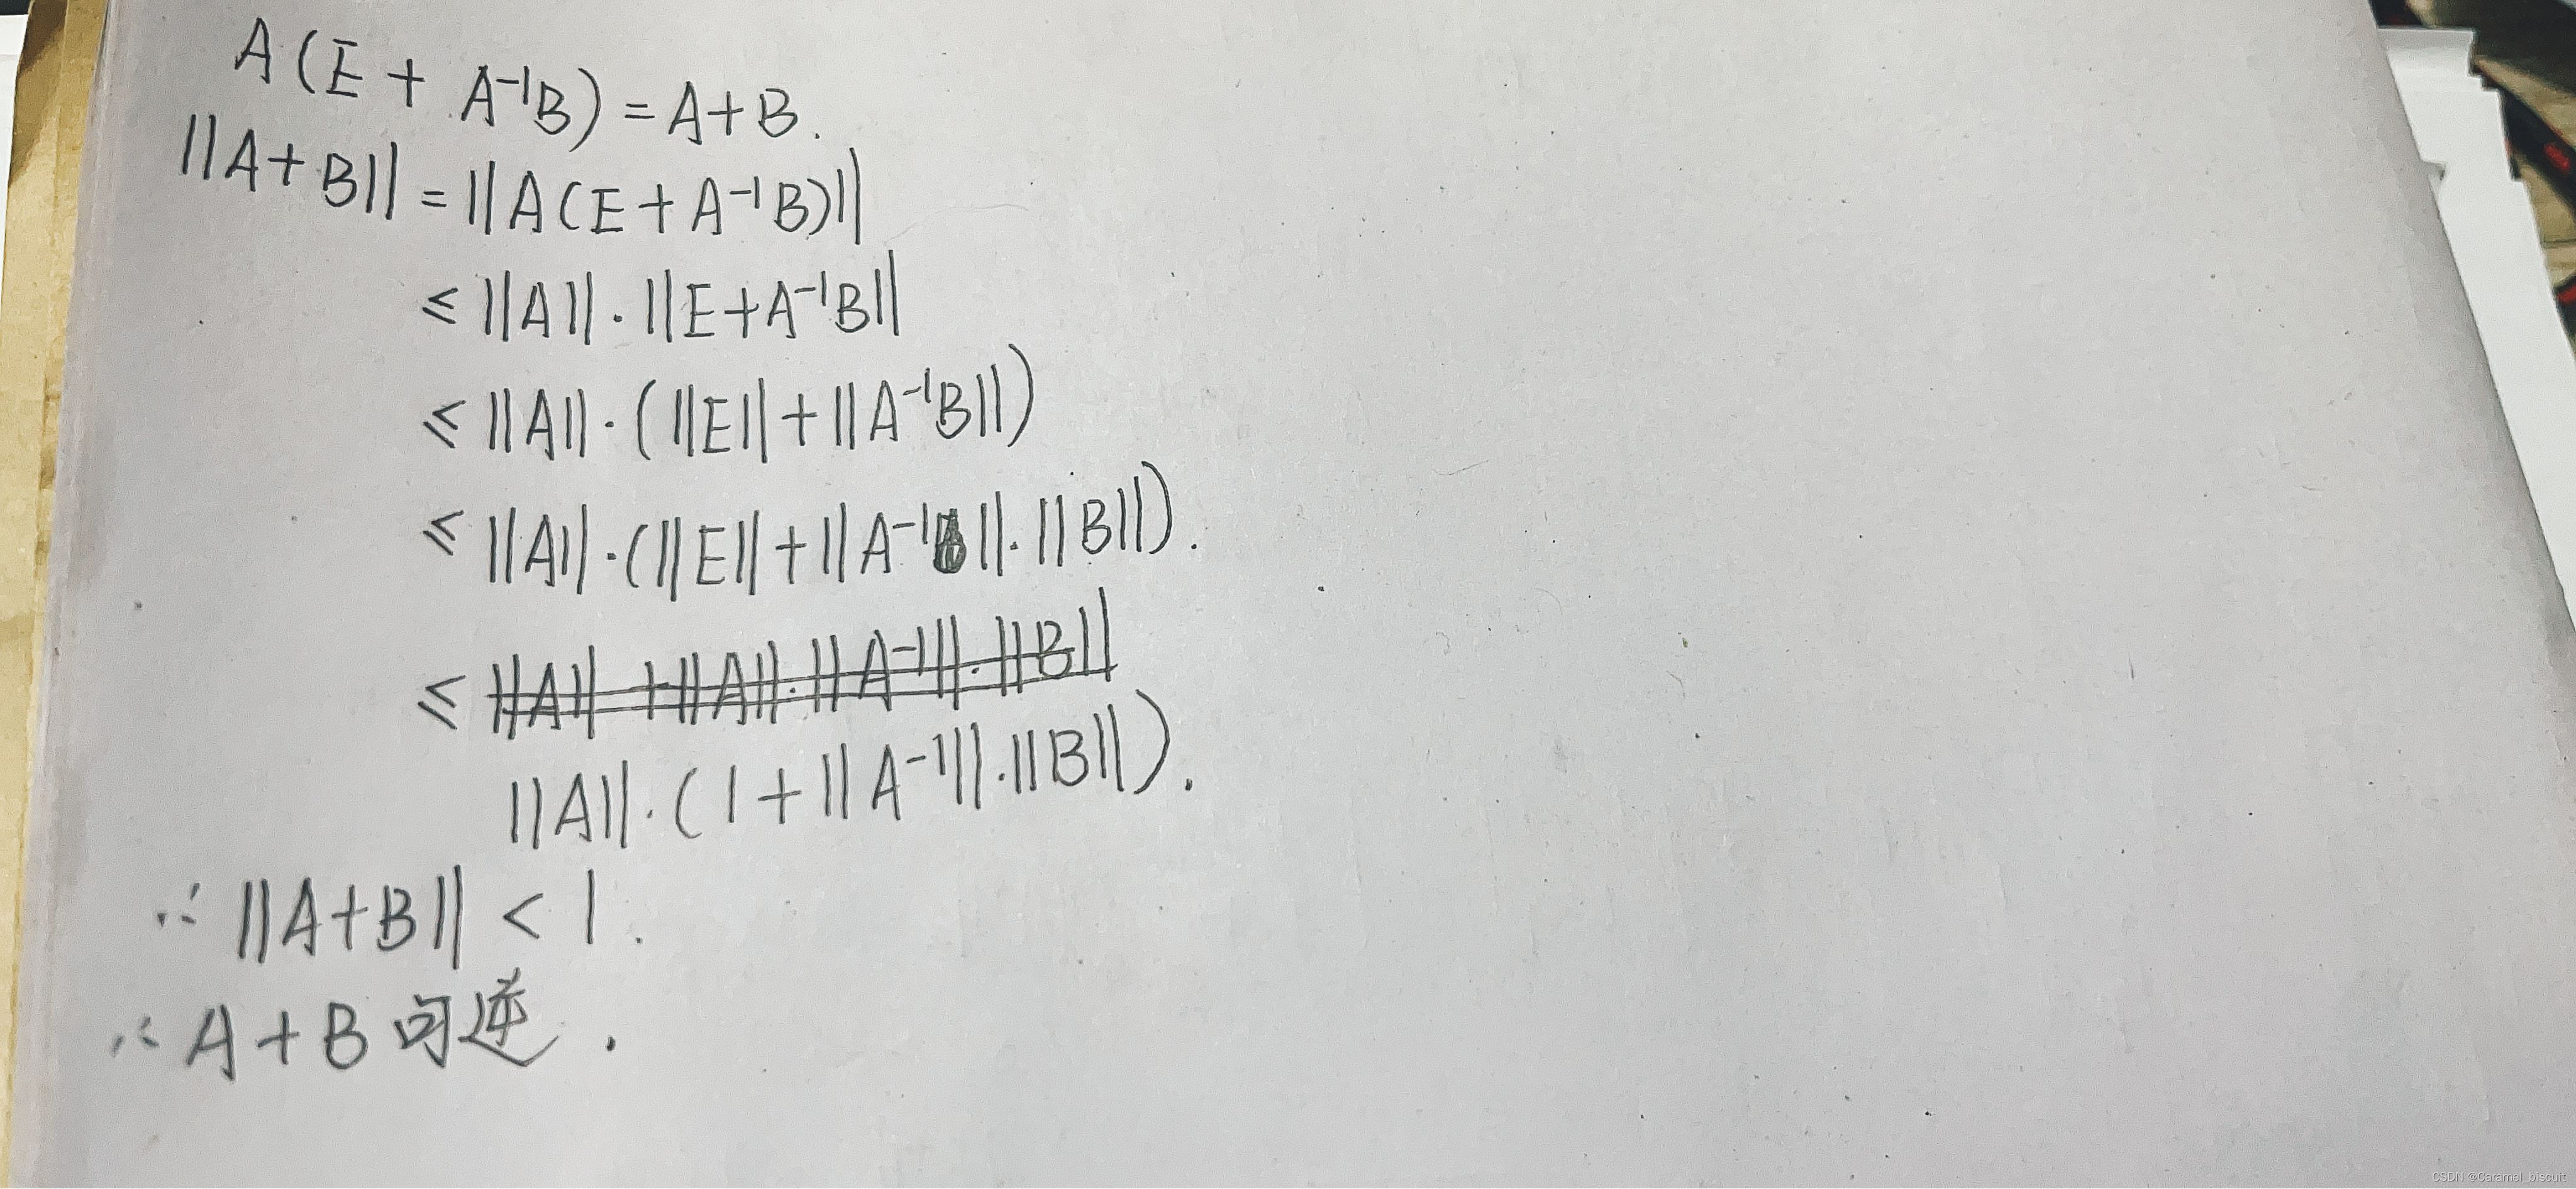 A(E + A⁻¹B) = A+B.
||A+B|| = ||A(E+A⁻¹B)||
≤ ||A||·||E+A⁻¹B||
≤ ||A||·(||E||+||A⁻¹B||)
≤ ||A||·(||E||+||A⁻¹||·||B||).
≤ ||A|| +||A||·||A⁻¹||·||B||
||A||·(1+||A⁻¹||·||B||).
∴ ||A+B|| < 1.
∴ A+B可逆.
CSDN @Caramel_biscuit